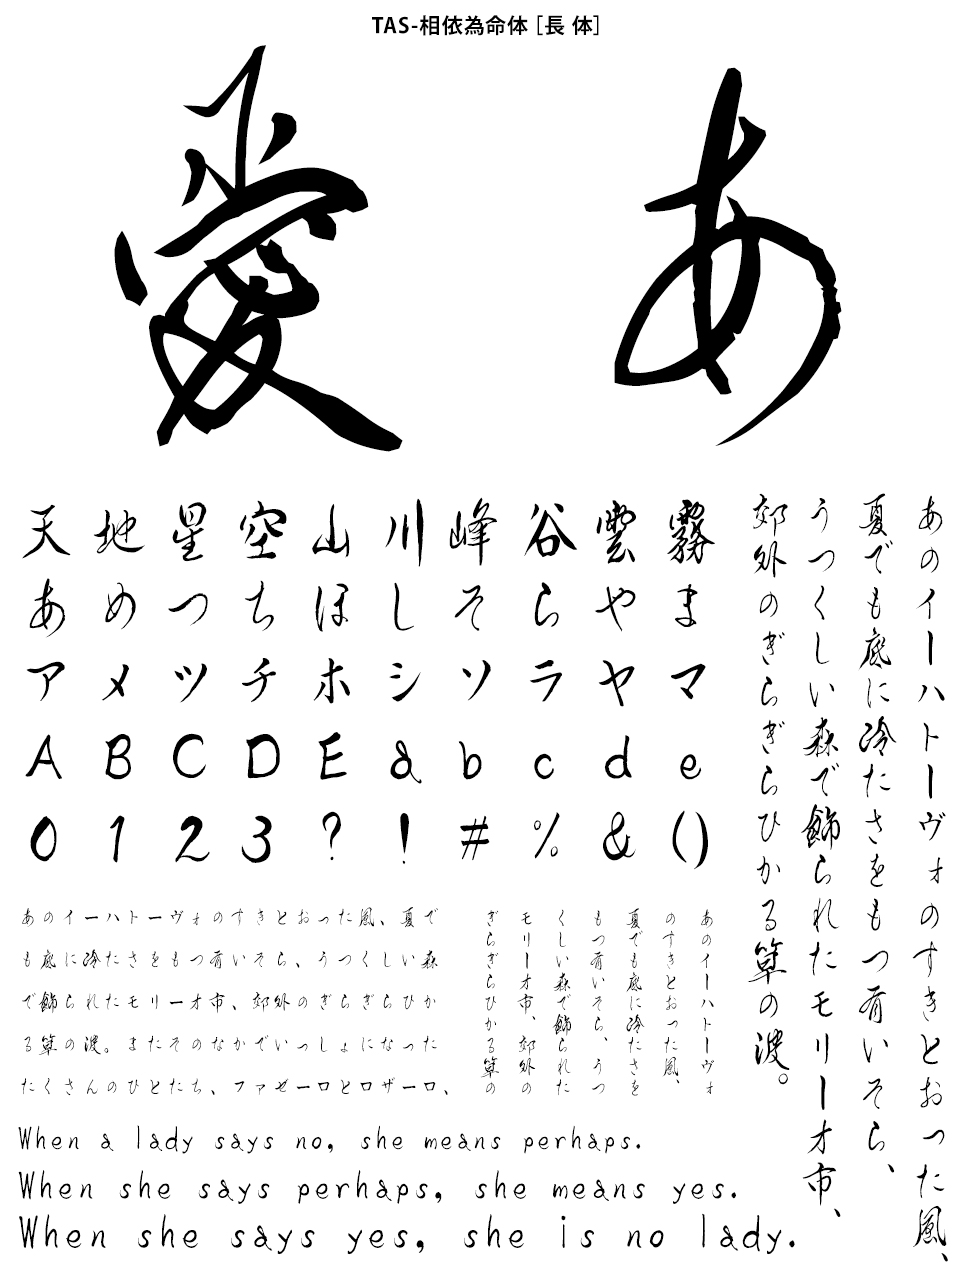 TAS-相依為命体［長 体］
愛 あ
天 地 星 空 山 川 峰 谷 雲 霧
あ め つ ち ほ し そ ら や ま
ア メ ツ チ ホ シ ソ ラ ヤ マ
A B C D E a b c d e
0 1 2 3 ? ! # % & ()
あのイーハトーヴォのすきとおった風、
夏でも底に冷たさをもつ青いそら、
うつくしい森で飾られたモリーオ市、
郊外のぎらぎらひかる草の波。
あのイーハトーヴォのすきとおった風、夏で
も底に冷たさをもつ青いそら、うつくしい森
で飾られたモリーオ市、郊外のぎらぎらひか
る草の波。またそのなかでいっしょになった
たくさんのひとたち、ファゼーロとロザーロ、
あのイーハトーヴォ
のすきとおった風、
夏でも底に冷たさを
もつ青いそら、うつ
くしい森で飾られた
モリーオ市、郊外の
ぎらぎらひかる草の
When a lady says no, she means perhaps.
When she says perhaps, she means yes.
When she says yes, she is no lady.